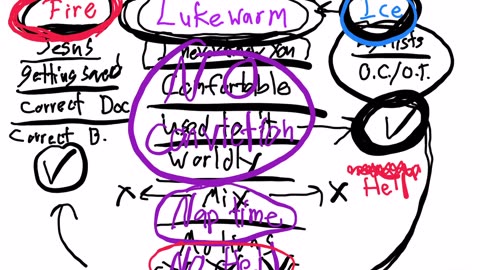 Fire
Jesus
getting saved
Correct Doc
Correct B.
Lukewarm
I never knew You
Comfortable
used to it
worldly
Mix
Motions
No
Conviction
Nap time.
No Hell
Ice
O.C./O.T.
Hell